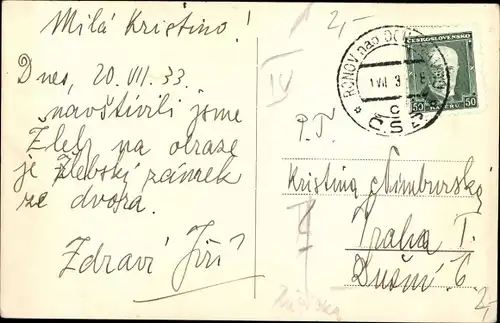 Milá Kristino!
Dnes, 20. VII. 33
navštívili jsme
Žleby na obraze
je Žlebský zámek
ze dvora.
Zdraví Jiří
2,-
IV
RONOV nad DOUBR
ČESKOSLOVENSKO
50 HALÉŘŮ 50
P. T.
Kristina Nimburská
Praha I.
Dušní č.
2,-